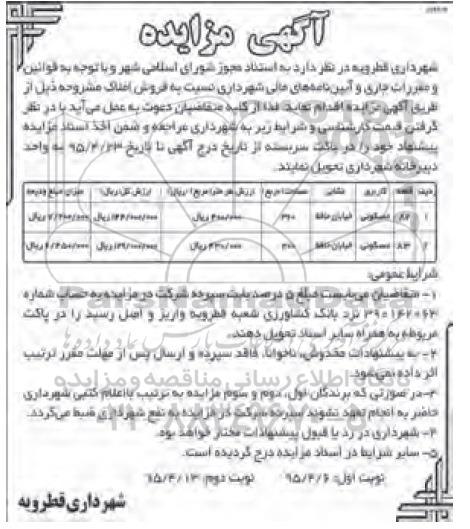 آگهی مزایده
شهرداری قطرویه در نظر دارد به استناد مجوز شورای اسلامی شهر و با توجه به قوانین
و مقررات جاری و آیین نامه‌های مالی شهرداری نسبت به فروش املاک مشروحه ذیل از
طریق آگهی مزایده اقدام نماید. لذا از کلیه متقاضیان دعوت به عمل می‌آید با در نظر
گرفتن قیمت کارشناسی و شرایط زیر به شهرداری مراجعه و ضمن اخذ اسناد مزایده
پیشنهاد خود را در پاکت سربسته از تاریخ درج آگهی تا تاریخ ۹۵/۴/۲۳ به واحد
دبیرخانه شهرداری تحویل نمایند.
ردیف قطعه کاربری نشانی مساحت (مربع) ارزش هر متر مربع (ریال) ارزش کل (ریال) میزان مبلغ ودیعه
۱ ۸۲ مسکونی خیابان حافظ ۳۶۰ ۴۰۰/۰۰۰ ریال ۱۴۴/۰۰۰/۰۰۰ ریال ۷/۲۰۰/۰۰۰ ریال
۲ ۸۳ مسکونی خیابان حافظ ۳۰۰ ۴۳۰/۰۰۰ ریال ۱۲۹/۰۰۰/۰۰۰ ریال ۶/۴۵۰/۰۰۰ ریال
شرایط عمومی:
۱- متقاضیان می‌بایست مبلغ ۵ درصد بابت سپرده شرکت در مزایده به حساب شماره
نزد بانک کشاورزی شعبه قطرویه واریز و اصل رسید را در پاکت
مربوطه به همراه سایر اسناد تحویل دهند.
۲- به پیشنهادات مخدوش، ناخوانا، فاقد سپرده و ارسال پس از مهلت مقرر ترتیب
اثر داده نمی‌شود.
۳- در صورتی که برندگان اول، دوم و سوم مزایده به ترتیب با اعلام کتبی شهرداری
حاضر به انجام تعهد نشوند سپرده شرکت در مزایده به نفع شهرداری ضبط می‌گردد.
۴- شهرداری در رد یا قبول پیشنهادات مختار خواهد بود.
۵- سایر شرایط در اسناد مزایده درج گردیده است.
نوبت اول: ۹۵/۴/۶ نوبت دوم: ۹۵/۴/۱۳
شهرداری قطرویه
پایگاه اطلاع رسانی مناقصه و مزایده